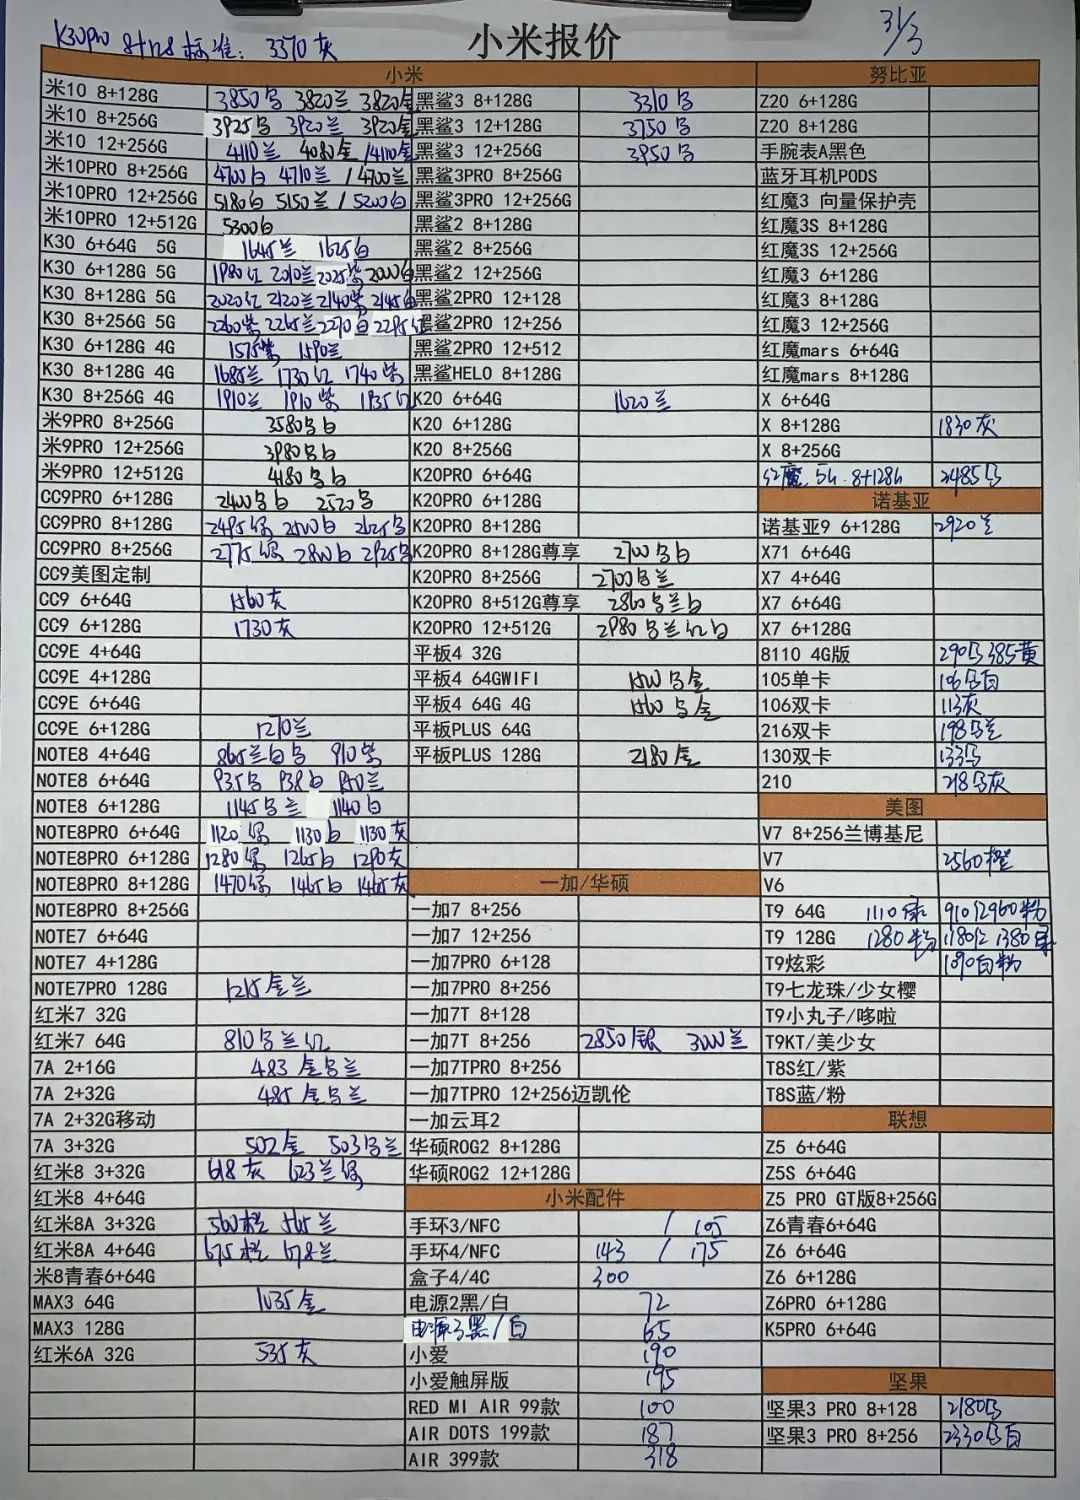 K30pro 8+128 标准: 3370灰
小米报价
31/3
小米 努比亚
米10 8+128G 3850乌 3820兰 3820金 黑鲨3 8+128G 3310乌 Z20 6+128G
米10 8+256G 3925乌 3920兰 3920金 黑鲨3 12+128G 3750乌 Z20 8+128G
米10 12+256G 4110兰 4080金 /4110金 黑鲨3 12+256G 3950乌 手腕表A黑色
米10PRO 8+256G 4700白 4710兰 /4700兰 黑鲨3PRO 8+256G 蓝牙耳机PODS
米10PRO 12+256G 5180白 5150兰 /5200白 黑鲨3PRO 12+256G 红魔3 向量保护壳
米10PRO 12+512G 5300白 黑鲨2 8+128G 红魔3S 8+128G
K30 6+64G 5G 1645兰 1625白 黑鲨2 8+256G 红魔3S 12+256G
K30 6+128G 5G 1980红 2010兰 2025紫 2000白 黑鲨2 12+256G 红魔3 6+128G
K30 8+128G 5G 2020红 2120兰 2140紫 2145白 黑鲨2PRO 12+128 红魔3 8+128G
K30 8+256G 5G 2260紫 2265兰 2270白 2295红 黑鲨2PRO 12+256 红魔3 12+256G
K30 6+128G 4G 1575紫 1590兰 黑鲨2PRO 12+512 红魔mars 6+64G
K30 8+128G 4G 1685兰 1730红 1740紫 黑鲨HELO 8+128G 红魔mars 8+128G
K30 8+256G 4G 1910兰 1910紫 1935红 K20 6+64G 1620兰 X 6+64G
米9PRO 8+256G 3580乌白 K20 6+128G X 8+128G 1830灰
米9PRO 12+256G 3980乌白 K20 8+256G X 8+256G
米9PRO 12+512G 4180乌白 K20PRO 6+64G 红魔 5G 8+128G 2485乌
CC9PRO 6+128G 2400乌白 2520乌 K20PRO 6+128G 诺基亚
CC9PRO 8+128G 2495绿 2500白 2625乌 K20PRO 8+128G 诺基亚9 6+128G 2920兰
CC9PRO 8+256G 2775绿 2800白 2925乌 K20PRO 8+128G尊享 2700乌白 X71 6+64G
CC9美图定制 K20PRO 8+256G 2700乌兰 X7 4+64G
CC9 6+64G 1560灰 K20PRO 8+512G尊享 2860乌兰白 X7 6+64G
CC9 6+128G 1730灰 K20PRO 12+512G 2980乌兰红白 X7 6+128G
CC9E 4+64G 平板4 32G 8110 4G版 290乌 385黄
CC9E 4+128G 平板4 64GWIFI 1500乌金 105单卡 106乌白
CC9E 6+64G 平板4 64G 4G 1560乌金 106双卡 113灰
CC9E 6+128G 1270兰 平板PLUS 64G 216双卡 198乌兰
NOTE8 4+64G 865兰白乌 910紫 平板PLUS 128G 2180金 130双卡 133乌
NOTE8 6+64G 935乌 938白 950兰 210 218乌灰
NOTE8 6+128G 1145乌兰 1140白 美图
NOTE8PRO 6+64G 1120绿 1130白 1130灰 V7 8+256兰博基尼
NOTE8PRO 6+128G 1280绿 1265白 1290灰 V7 2560橙
NOTE8PRO 8+128G 1470绿 1465白 1465灰 一加/华硕 V6
NOTE8PRO 8+256G 一加7 8+256 T9 64G 1110绿 910红 960粉
NOTE7 6+64G 一加7 12+256 T9 128G 1280粉 1180红 1380绿
NOTE7 4+128G 一加7PRO 6+128 T9炫彩 1090白粉
NOTE7PRO 128G 1215金兰 一加7PRO 8+256 T9七龙珠/少女樱
红米7 32G 一加7T 8+128 T9小丸子/哆啦
红米7 64G 810乌兰红 一加7T 8+256 2850银 3000兰 T9KT/美少女
7A 2+16G 483金乌兰 一加7TPRO 8+256 T8S红/紫
7A 2+32G 485金乌兰 一加7TPRO 12+256迈凯伦 T8S蓝/粉
7A 2+32G移动 一加云耳2 联想
7A 3+32G 502金 503乌兰 华硕ROG2 8+128G Z5 6+64G
红米8 3+32G 618灰 623兰绿 华硕ROG2 12+128G Z5S 6+64G
红米8 4+64G 小米配件 Z5 PRO GT版8+256G
红米8A 3+32G 560橙 565兰 手环3/NFC / 105 Z6青春6+64G
红米8A 4+64G 675橙 678兰 手环4/NFC 143 / 175 Z6 6+64G
米8青春6+64G 盒子4/4C 300 Z6 6+128G
MAX3 64G 1035金 电源2黑/白 72 Z6PRO 6+128G
MAX3 128G 电源3黑/白 65 K5PRO 6+64G
红米6A 32G 535灰 小爱 190
小爱触屏版 195 坚果
RED MI AIR 99款 100 坚果3 PRO 8+128 2180乌
AIR DOTS 199款 187 坚果3 PRO 8+256 2330乌白
AIR 399款 318